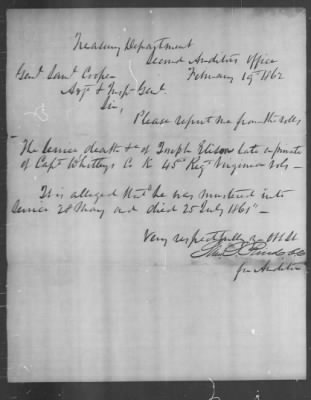 Treasury Department
Second Auditors Office
Genl Saml Cooper February 19th 1862
Adjt & Insp Genl
Sir,
Please report me from the rolls
The service death &c of Joseph Elison late a private
of Capt Whittleys Co K 45th Regt Virginia Vols —
It is alleged that he was mustered into
service 28 May and died 25 July 1861 —
Very respectfully yr Obt St
for Auditor